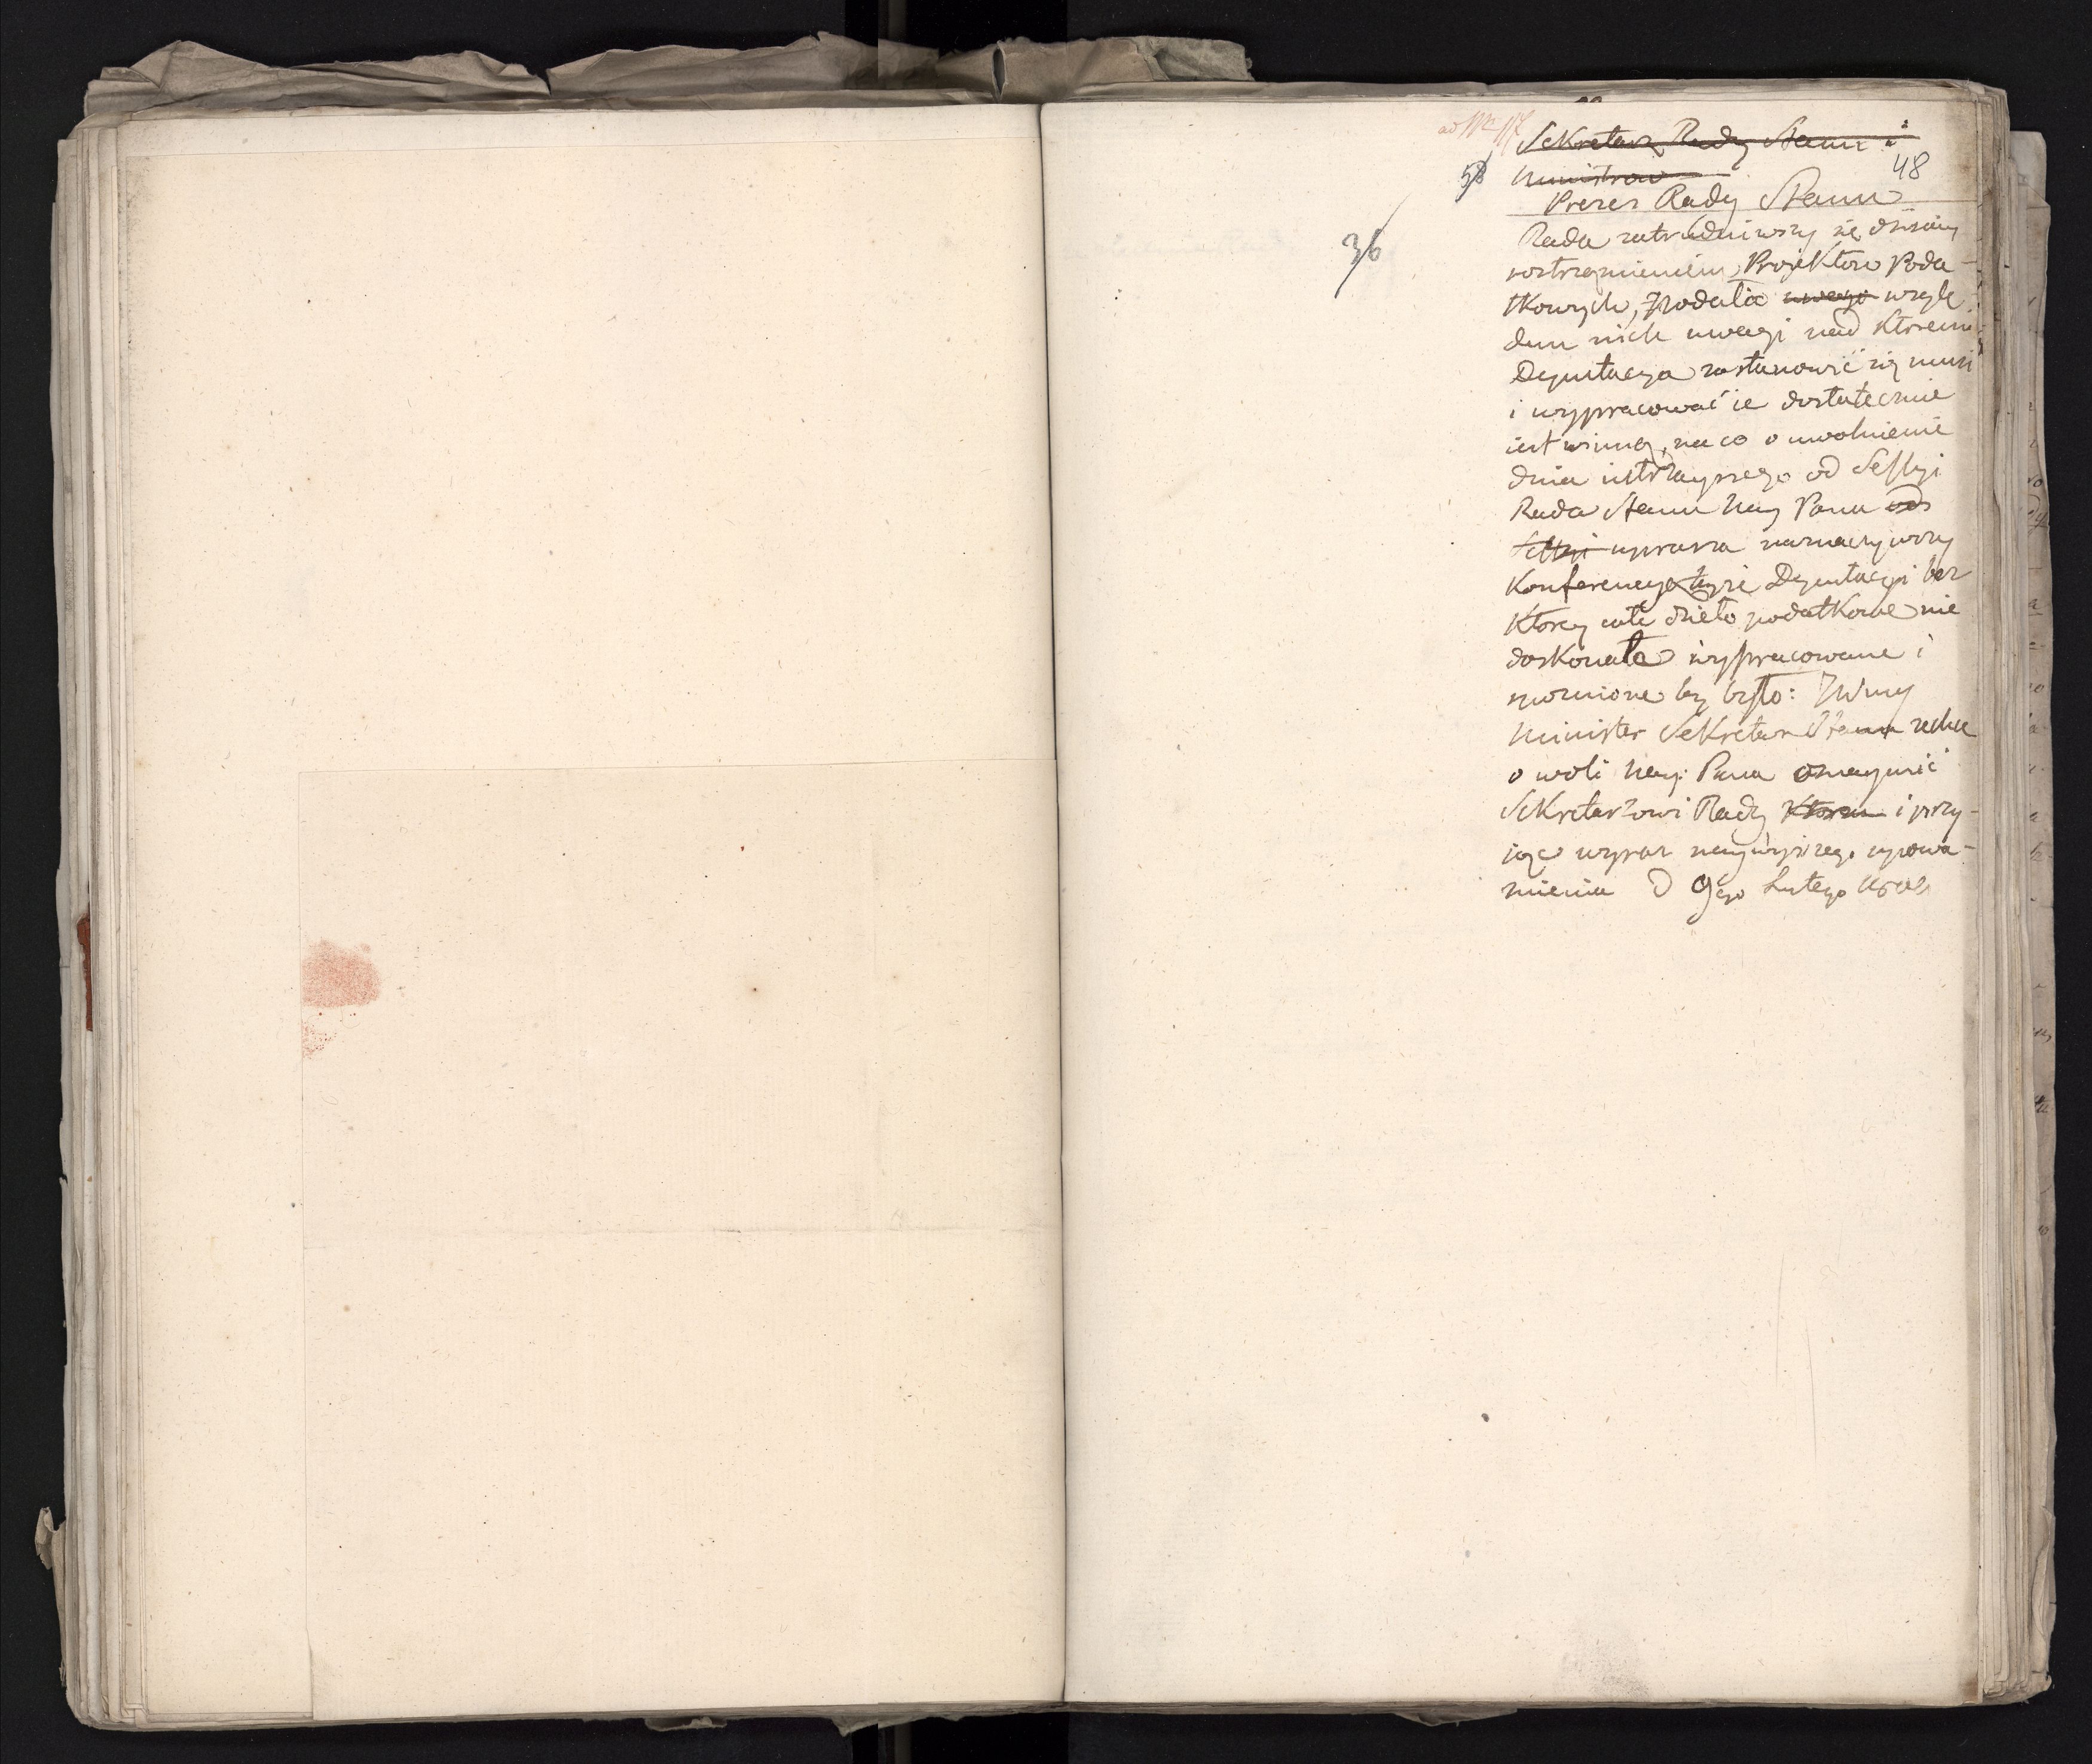 ad N 117
Sekretarz Rady Stanu i
58 48
Ministrow
Prezes Rady Stanu
36
Rada zatrudniwszy się dzisiay
rostrząśnieniem Projektow Poda-
tkowych, podała uwagi wzglę-
dem nich uwagi nad ktoremi
Deputacya zastanowić się musi
i wypracować ie dostatecznie
iest winną, na co o uwolnienie
dnia iutrzayszego od Sessyi
Rada Stanu Nay Pana od
Sessyi uprasza naznaczywszy
Konferencyę teyże Deputacyi bez
ktorey całe dzieło podatkowe nie
doskonale wypracowane i
by było: JWny
Minister Sekretarz Stanu zechce
o woli Nay: Pana oznaymić
Sekretarzowi Rady i przy-
iąć wyraz naywyższego upowa-
żnienia D 9go Lutego